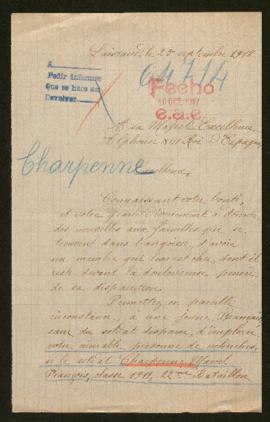 le 25 septembre 1917
A
Pedir informes
que se hace en
Devolver
64714
Fecho
10 OCT. 1917
e.a.e.
A sa Majesté Excellence
Alphonse XIII Roi d'Espagne
Charpenne
Excellence,
Connaissant votre bonté,
et votre dévouement à donner
des nouvelles aux familles qui se
trouvent dans l'angoisse, d'avoir
un membre qui leur est cher, dont il
reste devant la douloureuse pensée
de sa disparition
Permettez, en pareille
circonstance, à une jeune française
sœur du soldat disparu, d'implorer
votre aimable personne de recherches,
si le soldat Charpenne Marcel
François, classe 1911, 22me Bataillon